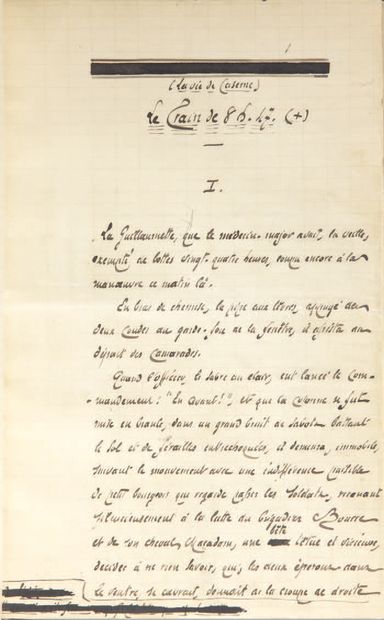 1
(La vie de Caserne)
Le Train de 8 h. 47. (+)
I.
La Guillaumette, que le médecin-major avait, la veille,
exempté de bottes vingt-quatre heures, coupa encore à la
manœuvre ce matin là.
En bras de chemise, la pipe aux lèvres, appuyé des
deux coudes au garde-fou de la fenêtre, il assista au
départ des camarades.
Quand l'officier, le sabre au clair, eut lancé le com-
mandement: "En avant!", et que la colonne se fut
mise en branle, dans un grand bruit de sabots battant
le sol et de ferailles entrechoquées, il demeura, immobile,
suivant le mouvement avec une indifférence paisible
de petit bourgeois qui regarde passer les soldats, ricanant
silencieusement à la lutte du brigadier Bourre
et de son cheval Macadam, une bête têtue et vicieuse,
décidée à ne rien savoir, qui, les deux éperons dans
le ventre, se cabrait, donnait de la croupe de droite